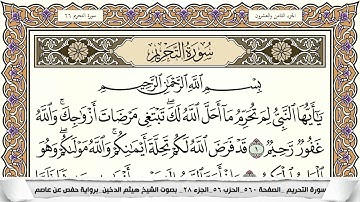 الجزء الثامن والعشرون
سورة التحريم ٦٦
سُورَةُ التَّحْرِيمِ
بِسْمِ اللَّهِ الرَّحْمَٰنِ الرَّحِيمِ
يَا أَيُّهَا النَّبِيُّ لِمَ تُحَرِّمُ مَا أَحَلَّ اللَّهُ لَكَ ۖ تَبْتَغِي مَرْضَاتَ أَزْوَاجِكَ ۚ وَاللَّهُ
غَفُورٌ رَّحِيمٌ ۝١ قَدْ فَرَضَ اللَّهُ لَكُمْ تَحِلَّةَ أَيْمَانِكُمْ ۚ وَاللَّهُ مَوْلَاكُمْ ۖ وَهُوَ
سورة التحريم _الصفحة ٥٦٠_الحزب ٥٦_الجزء ٢٨_ بصوت الشيخ هيثم الدخين_ برواية حفص عن عاصم